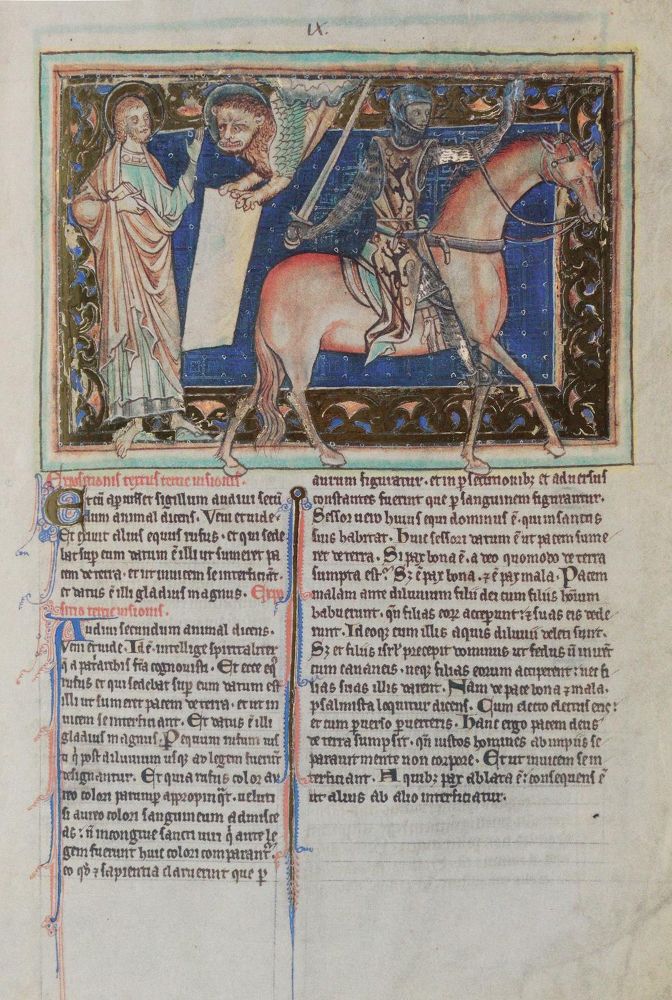 IX
Expositionis textus tercie visionis.
Et cū apuisset sigillum audiui secū
dum animal dicens. Veni et uide.
Et exiuit alius equus rufus. et qui sede
bat sup eum datum ē illi ut sumeret pa
cem de terra. et ut inuicem se interficiāt.
et datus ē illi gladius magnus. Expo
sitio tercie uisionis.
Audiui secundum animal dicens.
Veni et uide. Id ē. intellige spiritaliter
q̄ a patriarchis cognouisti. Et ecce eqs
rufus et qui sedebat sup eum datum est
illi ut sumeret pacem de terra. et ut in
uicem se interficiant. Et datus ē illi
gladius magnus. Per equum rufum ius
ti q̄ post diluuium usq; ad legem fuerūt
designantur. Et quia rufus color au
reo colori parumper appropinqt. ueluti
si aureo colori sanguineum admisce
as; n̄ incongrue sancti uiri q̄ ante le
gem fuerunt huic colori comparant
eo qd ⁊ sapientia claruerint que p
aurum figuratur. et in psecutionibz et aduersis
constantes fuerint que p sanguinem figurantur.
Sessor uero huius equi dominus ē. qui in sanctis
suis habitat. Huic sessori datum ē ut pacem sume
ret de terra. Si pax bona ē. a deo quomodo de terra
sumpta est? Sz ē pax bona. ⁊ ē pax mala. Pacem
malam ante diluuium filii dei cum filiis hoīum
habuerunt. qn̄ filias eorz acceperunt; ⁊ suas eis dede
runt. Ideoqz cum illis aquis diluuii deleti sunt.
Sz et filiis isrl precepit dominus ut fedus n̄ inirent
cum cananeis. neqz filias eorum acciperent; nec fi
lias suas illis darent. Nam de pace bona ⁊ mala.
psalmista loquitur dicens. Cum electo electus eris;
et cum puerso puerteris. Hanc ergo pacem deus
de terra sumpsit. qn̄ iustos homines ab impiis se
parauit mente non corpore. Et ut inuicem se in
terficiant. A quibz pax ablata ē; consequens ē
ut alius ab alio interficiatur.